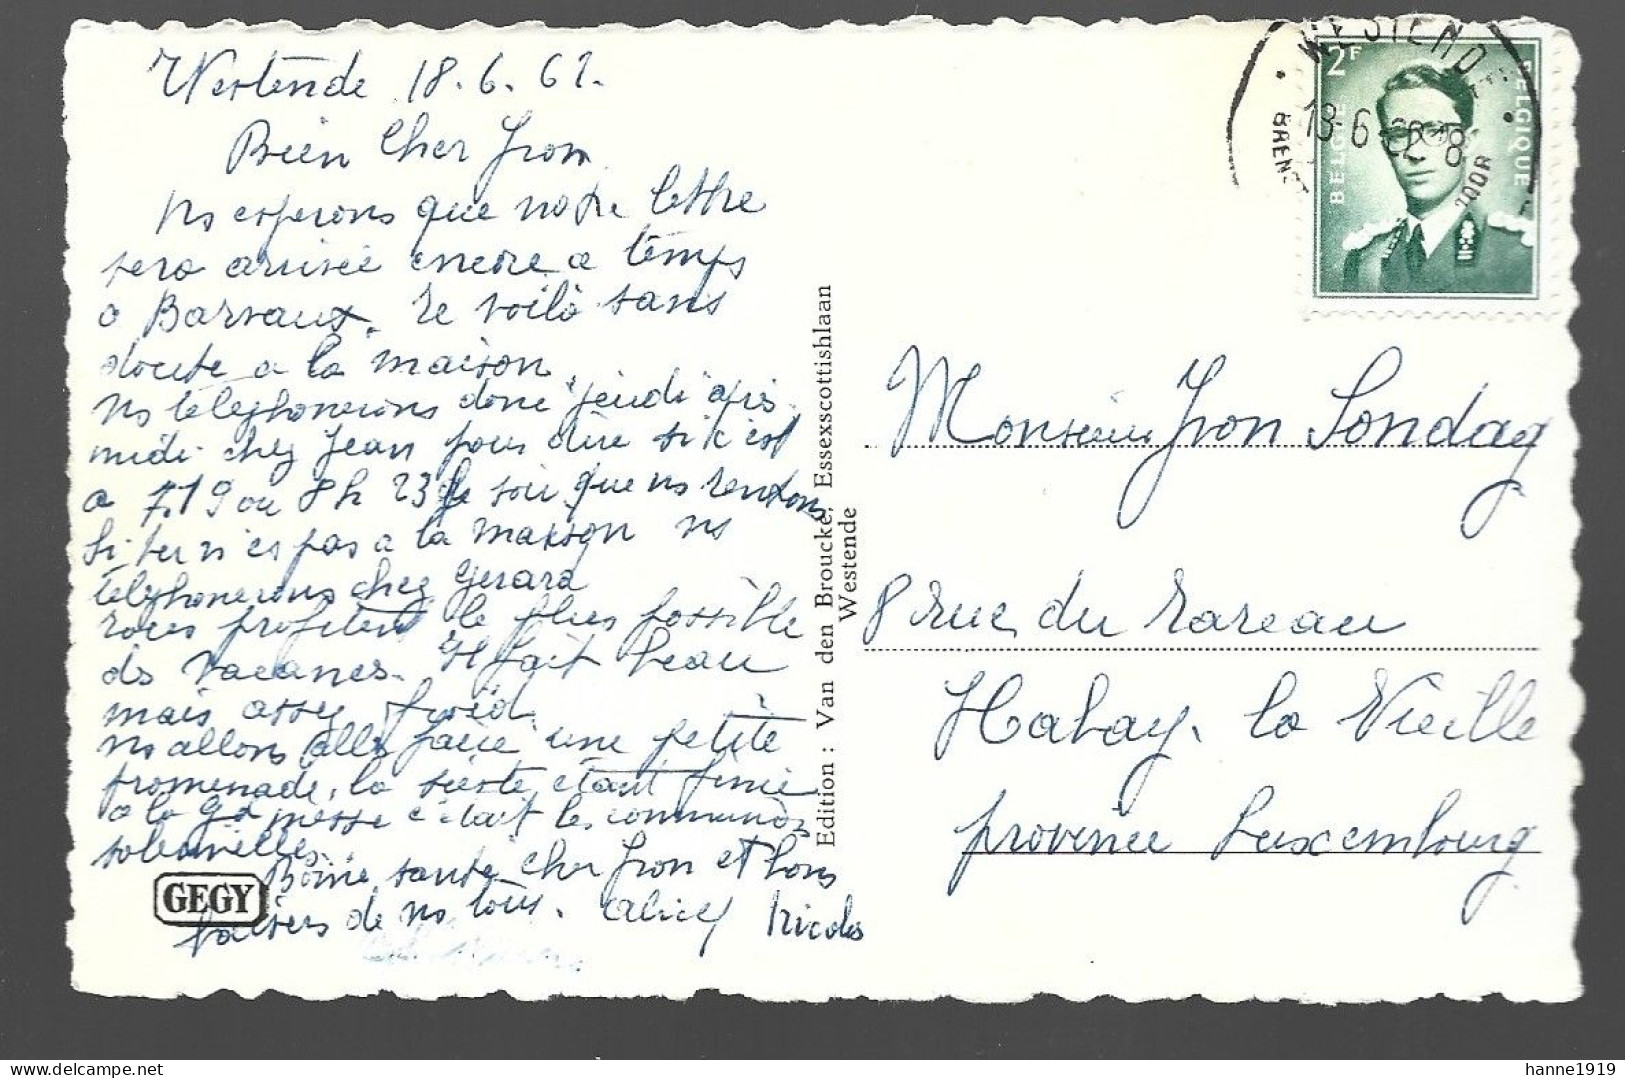 Westende 18.6.62.
Bien Cher Yvon
ns esperons que notre lettre
sera arrivée encore a temps
a Barvaux. te voilà sans
doute a la maison.
ns telephonerons donc jeudi après
midi chez Jean pour dire si c'est
a 7.19 ou 8h 23 le soir que ns rentrons
Si tu n'es pas a la maison ns
telephonerons chez Gerard
profitent le plus possible
ds vacances. Il fait beau
mais assez froid
ns allons alle faire une petite
promenade, la sieste étant finie
a la gd messe c'était les communions
solennelles.
Bonne santé cher Yvon et bons
baisers de ns tous. Nicolas
GEGY
Edition : Van den Broucke, Essexscottishlaan
Westende
WESTENDE
18-6-62 18
2F
BELGIE BELGIQUE
Monsieur Yvon Sondag
8 rue du
Habay. la Vieille
province Luxembourg
hanne1919